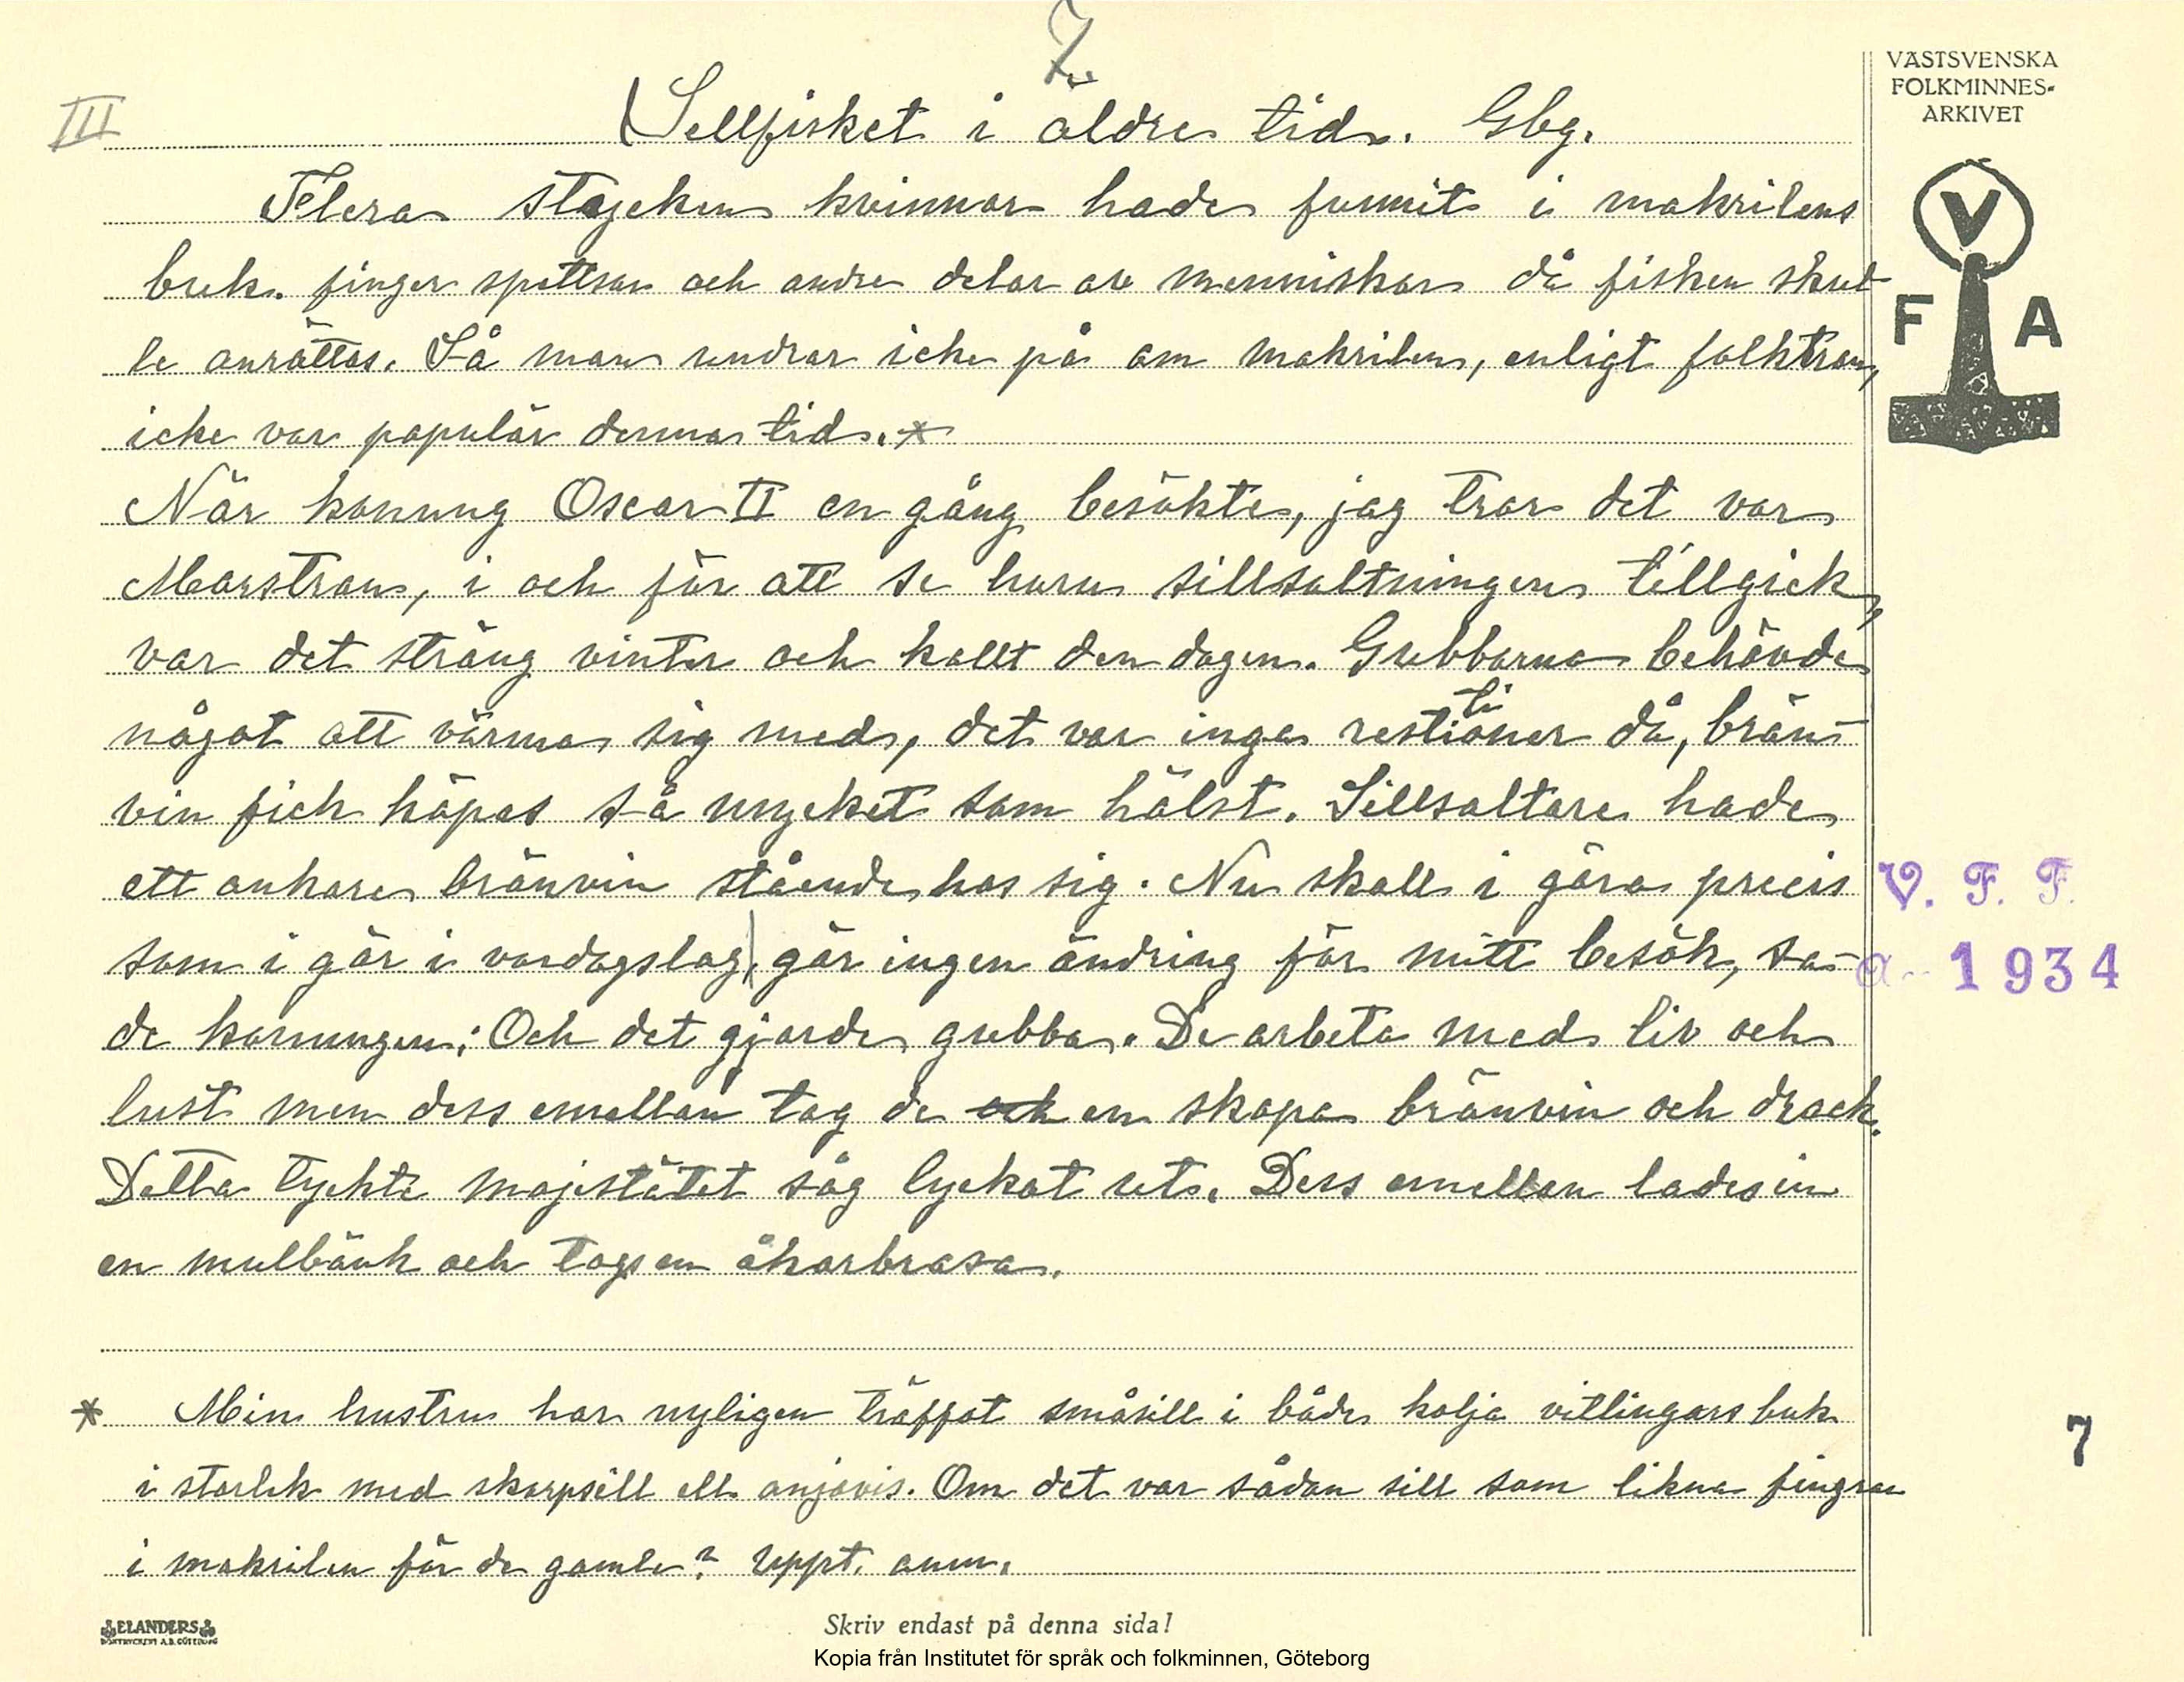 7
VÄSTSVENSKA
FOLKMINNES-
ARKIVET
III
Sillfisket i äldre tid. Gbg.
Flera stycken kvinnor hade funnit i makrilens
buk. finger spettsar och andra delar av menniskor då fisken skul
le anrättas. Så man undrar icke på om makrilen, enligt folktron,
icke var populär denna tid. *
V
F A
När konung Oscar II en gång besökte, jag tror det var
Marstran, i och för att se huru sillsaltningen tillgick,
var det sträng vinter och kallt den dagen. Gubbarna behövde
ti
något att värma sig med, det var inga restioner då, brän-
vin fick köpas så mycket som hälst. Sillsaltare hade
ett ankare bränvin stående hos sig. Nu skall i göra precis
V. F. F.
som i gör i vardagslag, gör ingen ändring för mitt besök, sa-
a - 1934
de konungen; Och det gjorde gubba. De arbeta med liv och
lust men dess emellan tog de och en skopa bränvin och drack.
Detta tyckte majestätet såg lyckat ut. Dess emellan lades in
en mullbänk och togs en åkarbrasa.
* Min hustru har nyligen träffat småsill i både kolja vitlingars buk
7
i storlek med skarpsill ell. anjovis. Om det var sådan sill som likna fingrar
i makrilen för de gamle? Uppt. anm.
ELANDERS
BOKTRYCKERI A.B. GÖTEBORG
Skriv endast på denna sida!
Kopia från Institutet för språk och folkminnen, Göteborg